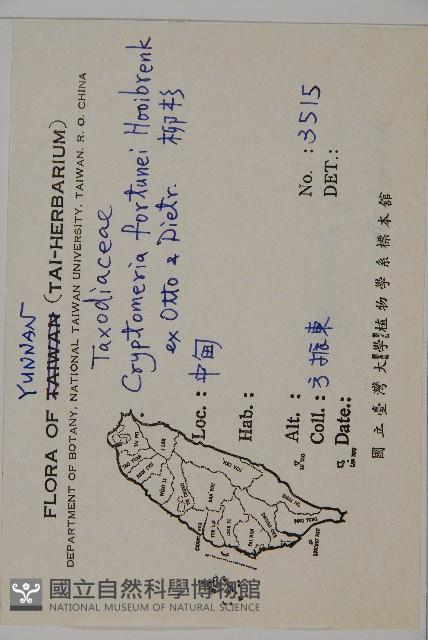 YUNNAN
FLORA OF TAIWAN (TAI-HERBARIUM)
DEPARTMENT OF BOTANY, NATIONAL TAIWAN UNIVERSITY, TAIWAN, R. O. CHINA
Taxodiaceae
Cryptomeria fortunei Hooibrenk
ex Otto & Dietr. 柳杉
Loc.: 中甸
Hab.:
Alt.: No.: 3515
Coll.: 方振東 DET.:
Date.:
國立臺灣大學植物學系標本館
國立自然科學博物館
NATIONAL MUSEUM OF NATURAL SCIENCE